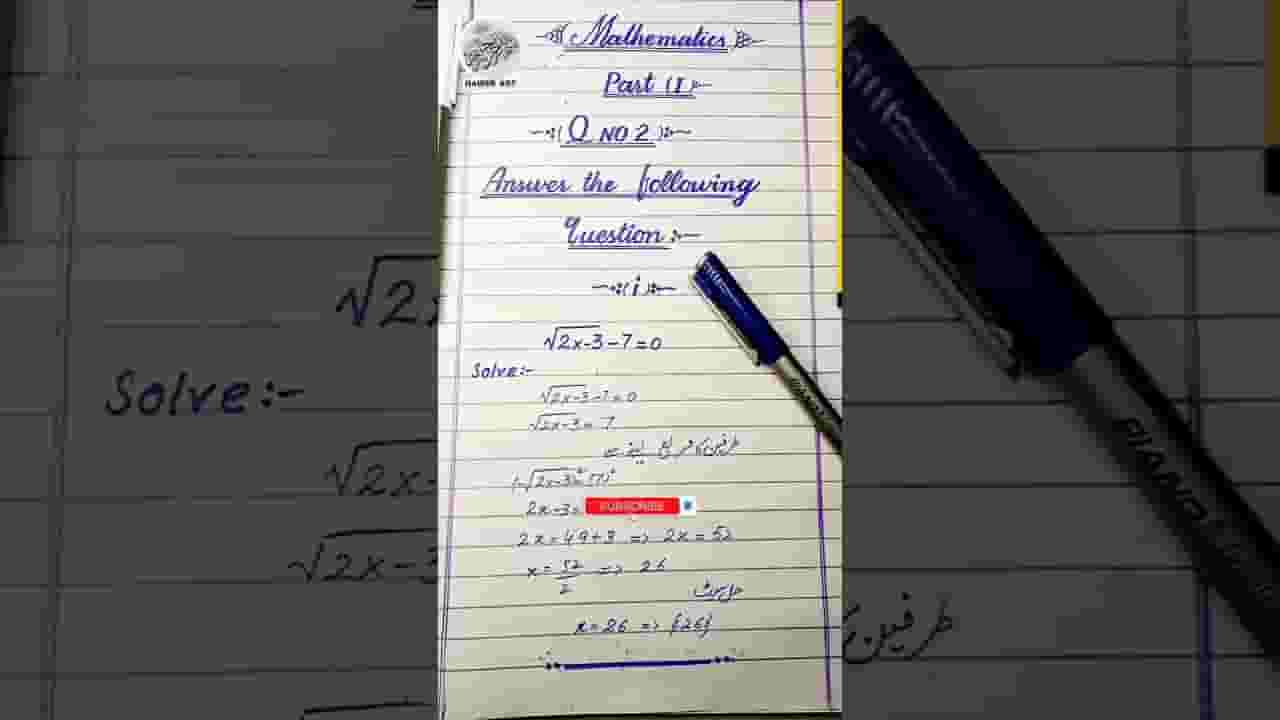 HAIDER ART
Mathematics
Part (I)
Q NO 2
Answer the following
Question :-
(i)
√2x-3-7=0
Solve:-
√2x-3-7=0
√2x-3= 7
(√2x-3)²=(7)²
2x-3=
SUBSCRIBE
2x=49+3 => 2x=52
x=52/2 => 26
x=26 => {26}
√2x
Solve:-
√2x-
√2x-3
طرفین
PIANO